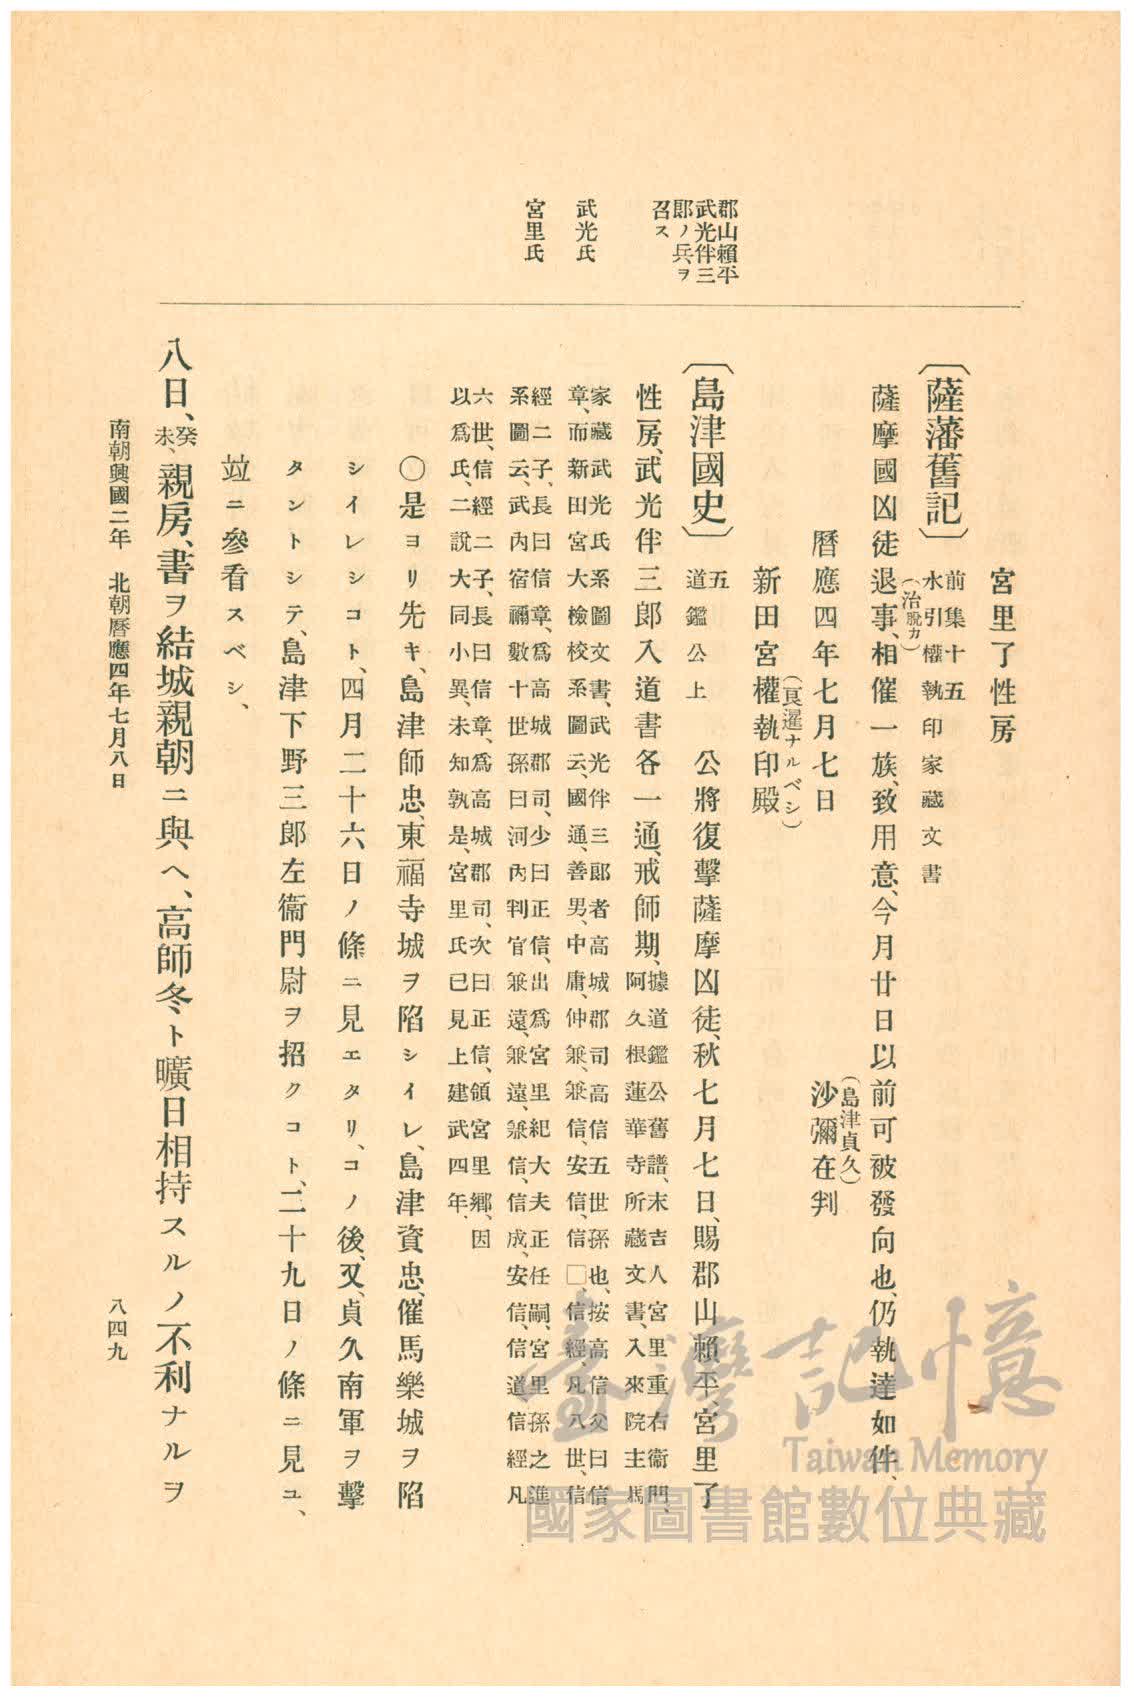 郡山賴平
武光伴三
郎ノ兵ヲ
召ス
武光氏
宮里氏
宮里了性房
〔薩藩舊記〕前集十五
水引權執印家藏文書
薩摩國凶徒退事、相催一族、致用意、今月廿日以前可被發向也、仍執達如件、
(治脫カ)
曆應四年七月七日
沙彌在判
(島津貞久)
新田宮權執印殿
(良暹ナルベシ)
〔島津國史〕五
道鑑公上
公將復擊薩摩凶徒、秋七月七日、賜郡山賴平、宮里了
性房、武光伴三郎入道書各一通、戒師期、
據道鑑公舊譜、末吉人宮里重右衞門、
阿久根蓮華寺所藏文書、入來院主馬
家藏武光氏系圖文書、武光伴三郎者高城郡司高信五世孫也、按高信父曰信
章、而新田宮大檢校系圖云、國通、善男、中庸、仲兼、兼信、安信、信□、信經、凡八世、信
經二子、長曰信章、爲高城郡司、少曰正信、出爲宮里紀大夫正任嗣、宮里孫之進
系圖云、武內宿禰數十世孫曰河內判官兼遠、兼遠、兼信、信成、安信、信道、信經、凡
六世、信經二子、長曰信章、爲高城郡司、次曰正信、領宮里鄉、因
以爲氏、二說大同小異、未知孰是、宮里氏已見上建武四年、
〇是ヨリ先キ、島津師忠、東福寺城ヲ陷シイレ、島津資忠、催馬樂城ヲ陷
シイレシコト、四月二十六日ノ條ニ見エタリ、コノ後、又、貞久南軍ヲ擊
タントシテ、島津下野三郎左衞門尉ヲ招クコト、二十九日ノ條ニ見ユ、
竝ニ參看スベシ、
八日、癸未、親房、書ヲ結城親朝ニ與ヘ、高師冬ト曠日相持スルノ不利ナルヲ
南朝興國二年 北朝曆應四年七月八日
八四九
臺灣記憶
Taiwan Memory
國家圖書館數位典藏